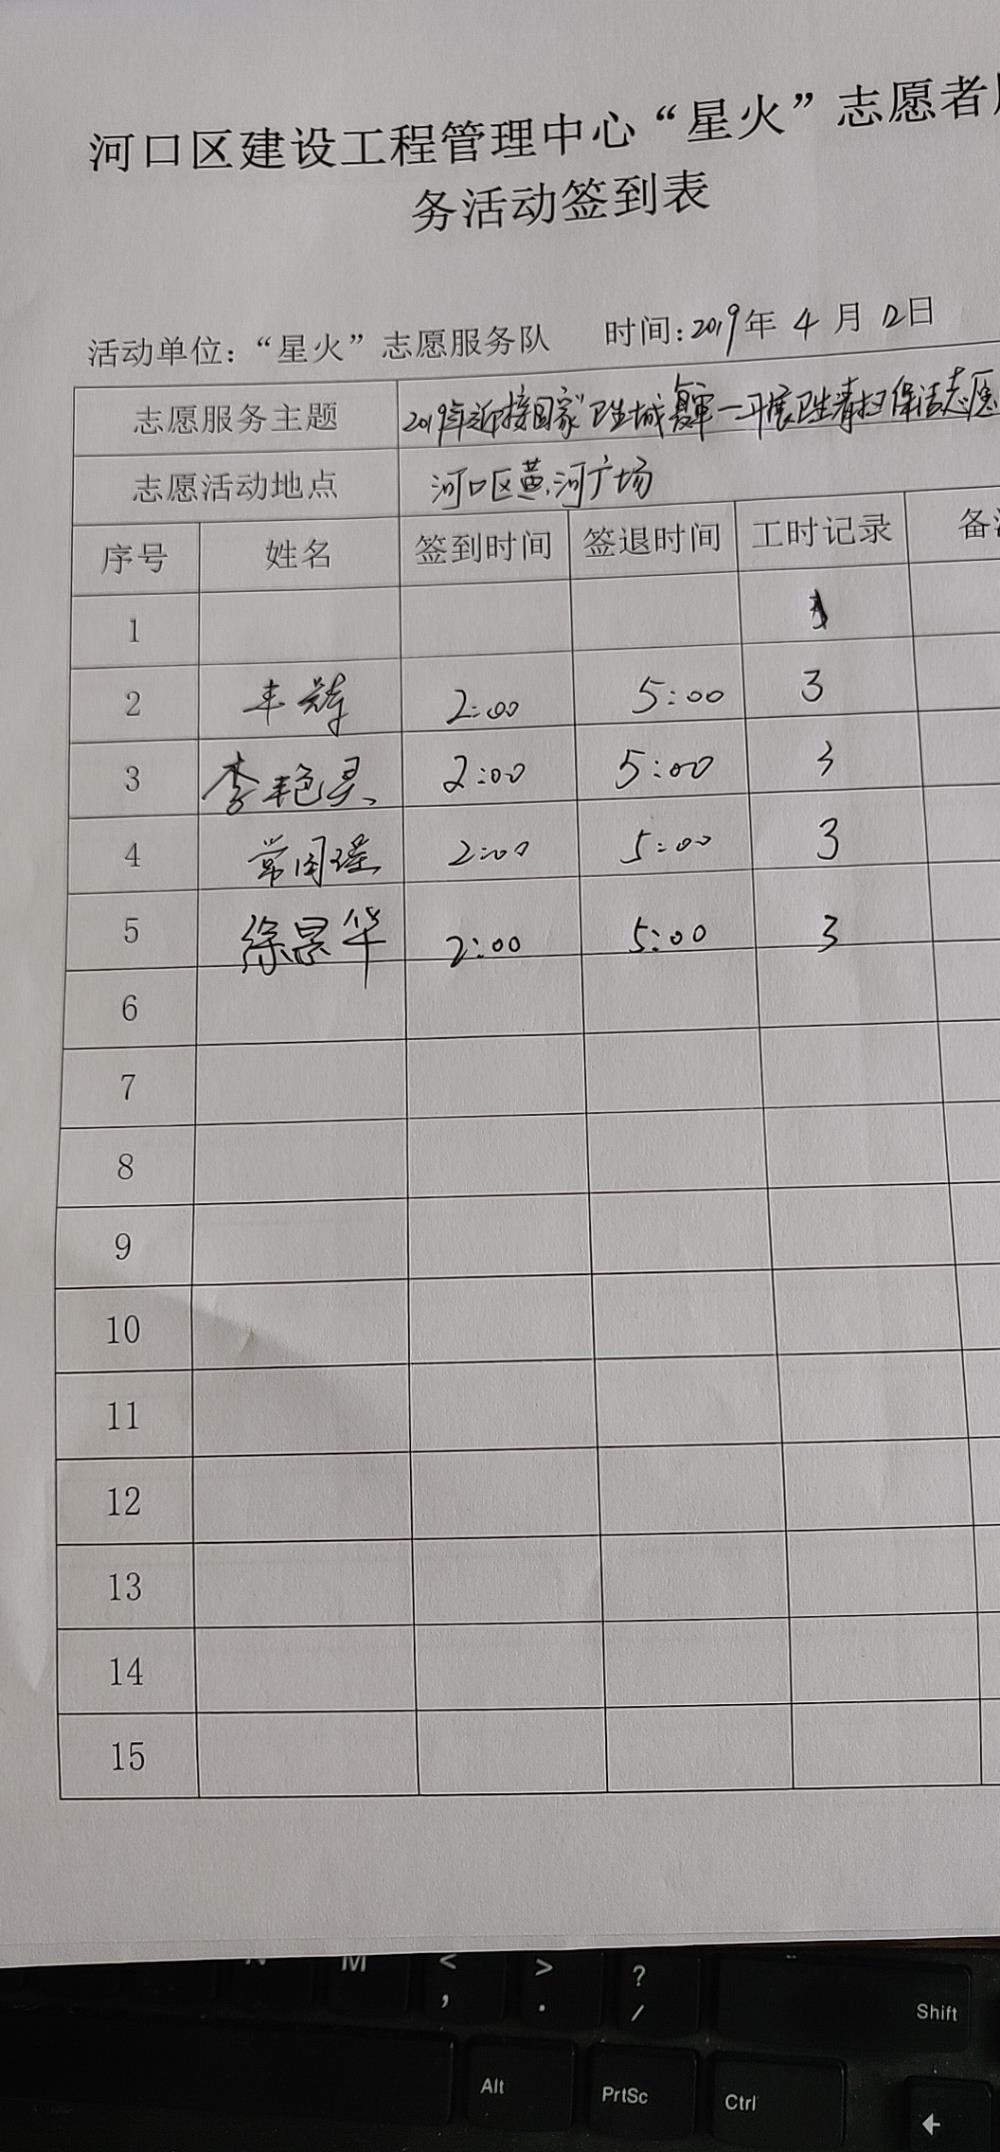 河口区建设工程管理中心“星火”志愿者
务活动签到表
活动单位：“星火”志愿服务队 时间：2019年 4 月 12日
志愿服务主题 2019年迎接国家卫生城复审—开展卫生清扫保洁志愿
志愿活动地点 河口区黄河广场
序号 姓名 签到时间 签退时间 工时记录 备
1
2 2:00 5:00 3
3 李艳灵 2:00 5:00 3
4 常国强 2:00 5:00 3
5 徐景华 2:00 5:00 3
6
7
8
9
10
11
12
13
14
15
M < , > . ? /
Shift
Alt PrtSc Ctrl
←